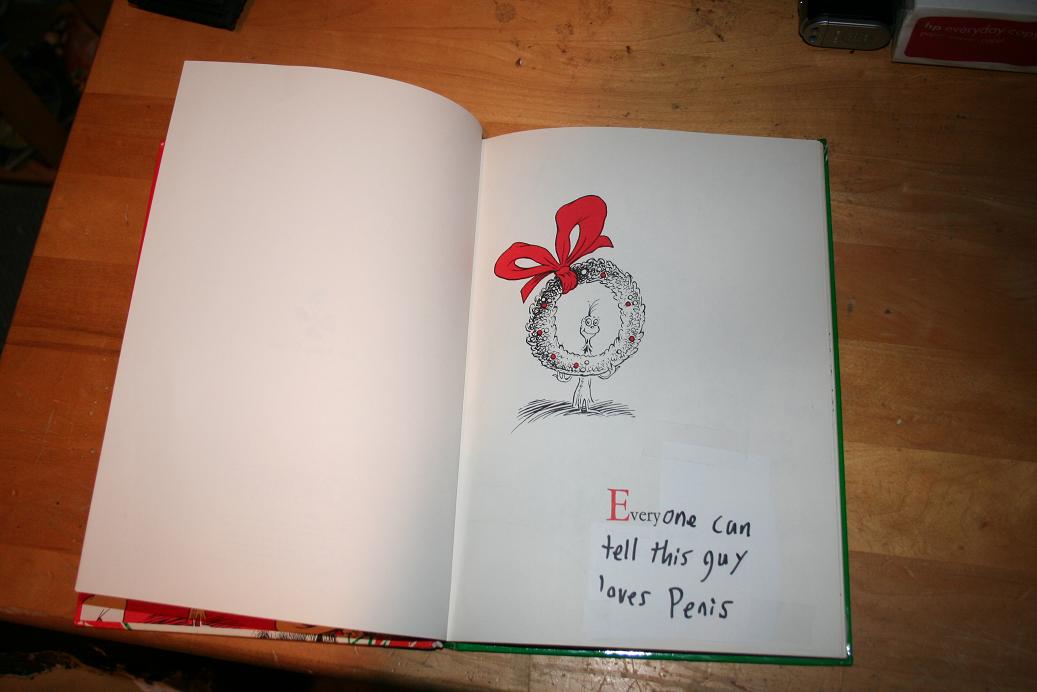 hp everyday copy
Everyone can
tell this guy
loves Penis